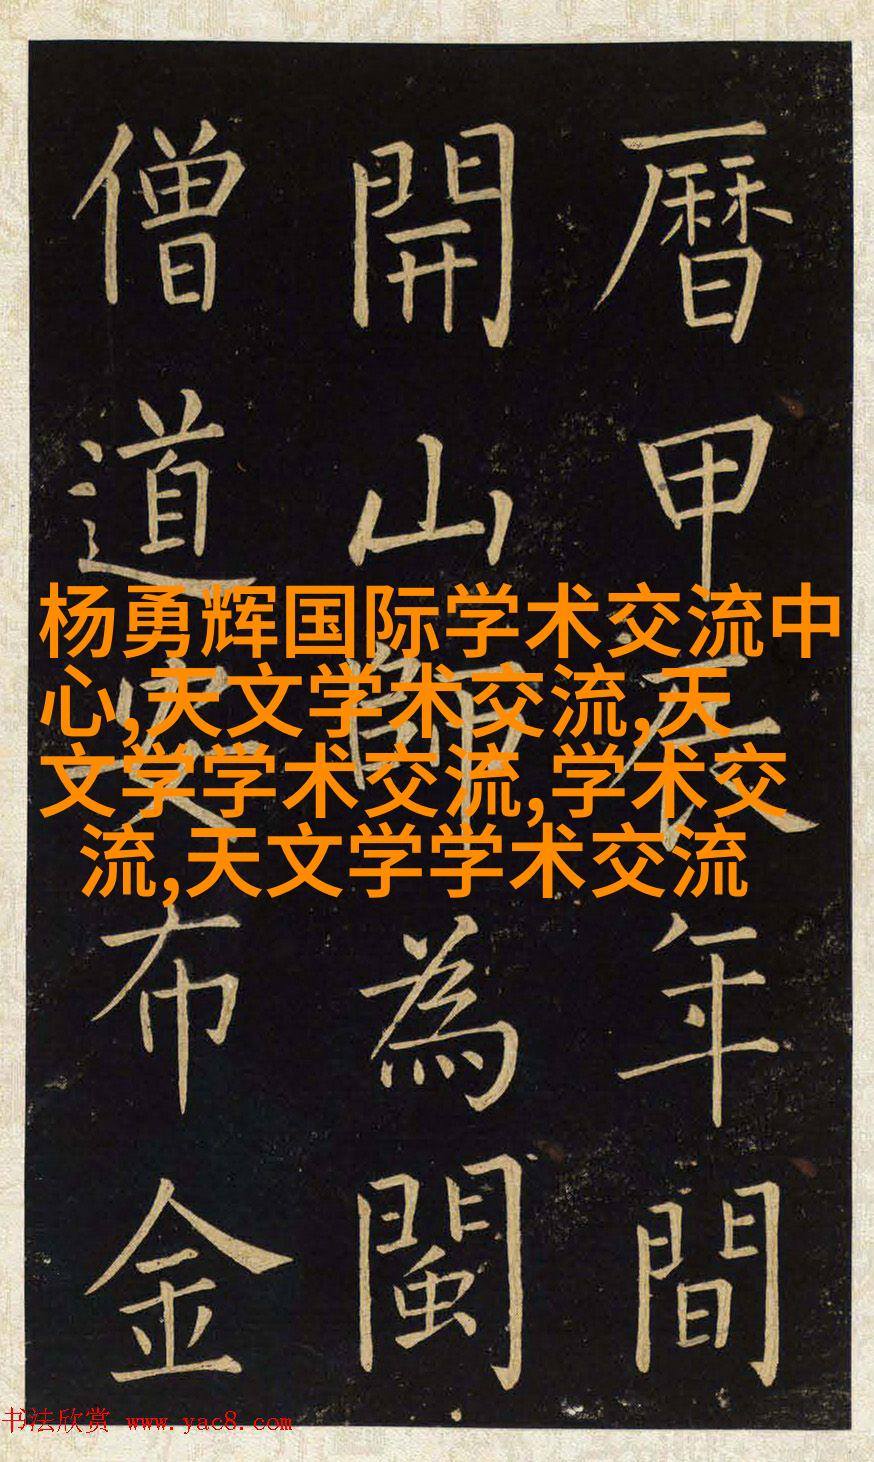 曆甲辰年間
開山師為閩
僧道布金
杨勇辉国际学术交流中
心,天文学术交流,天
文学学术交流,学术交
流,天文学学术交流
书法欣赏 www.yac8.com